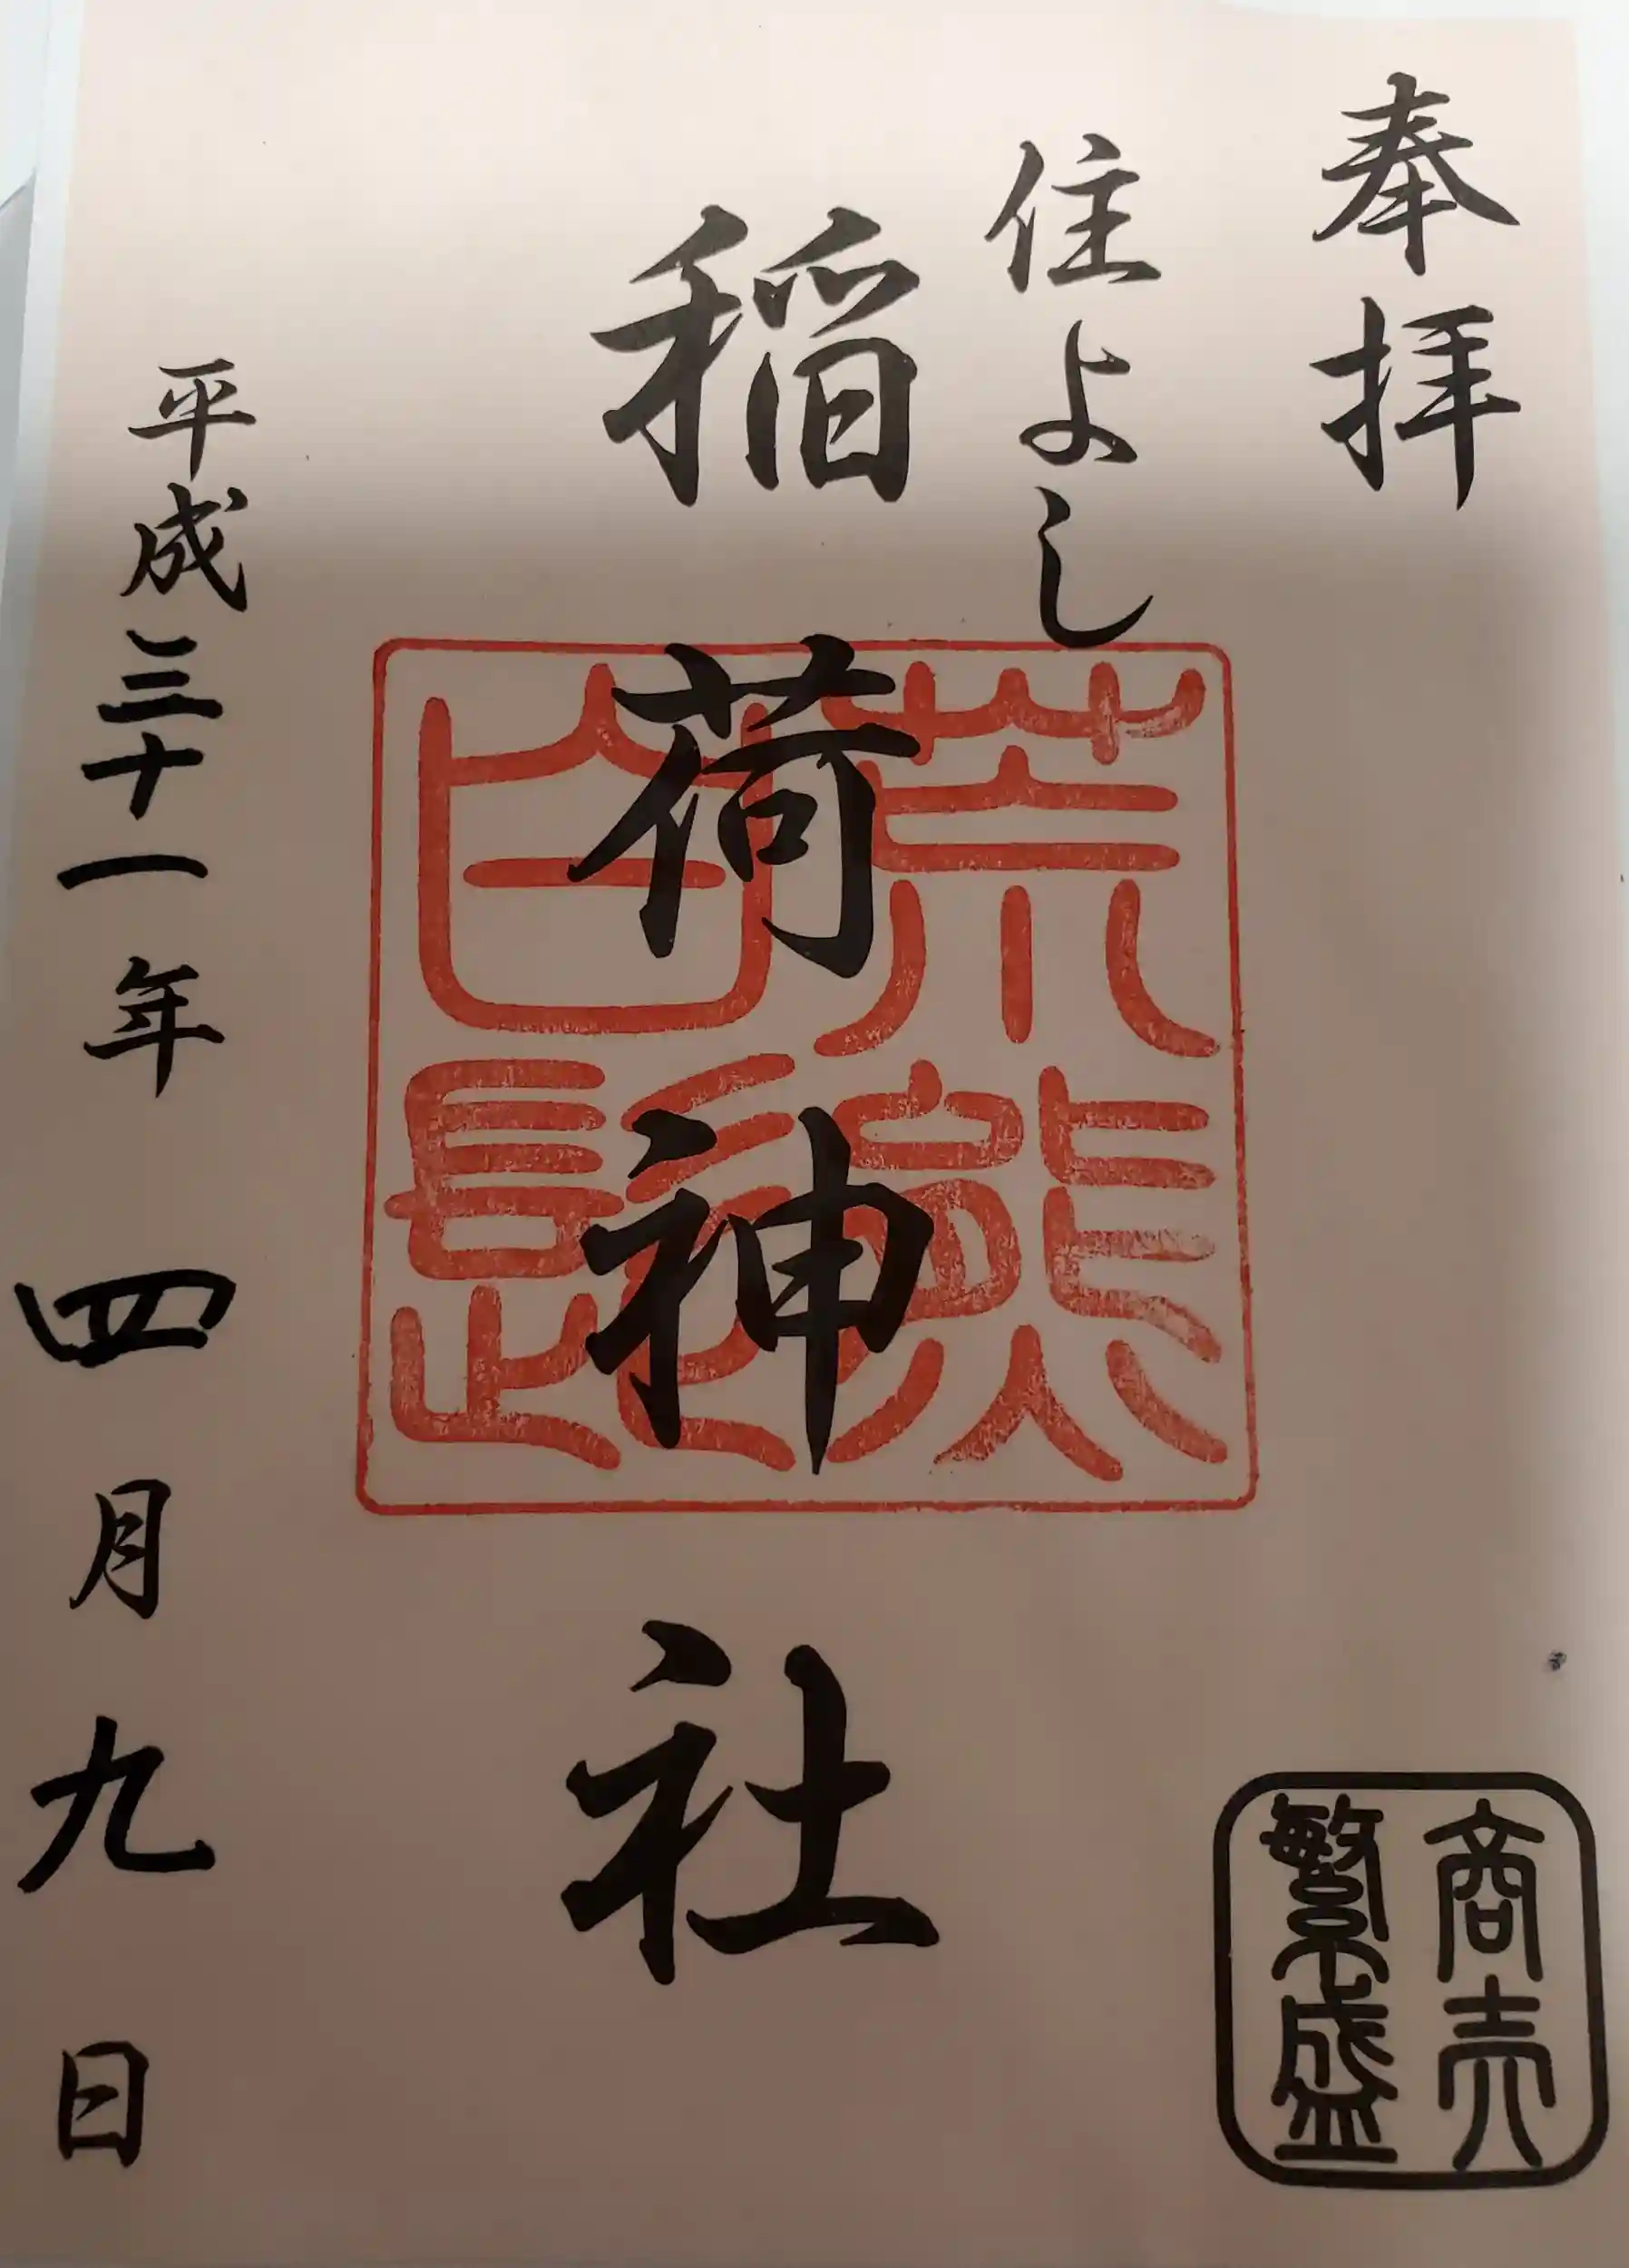 奉拝
住よし
稲荷神社
荒熊
白髭
平成三十一年四月九日
商売
繁盛